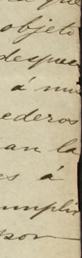 objeto
despues
á mis
ederos
an la
s á
umplir